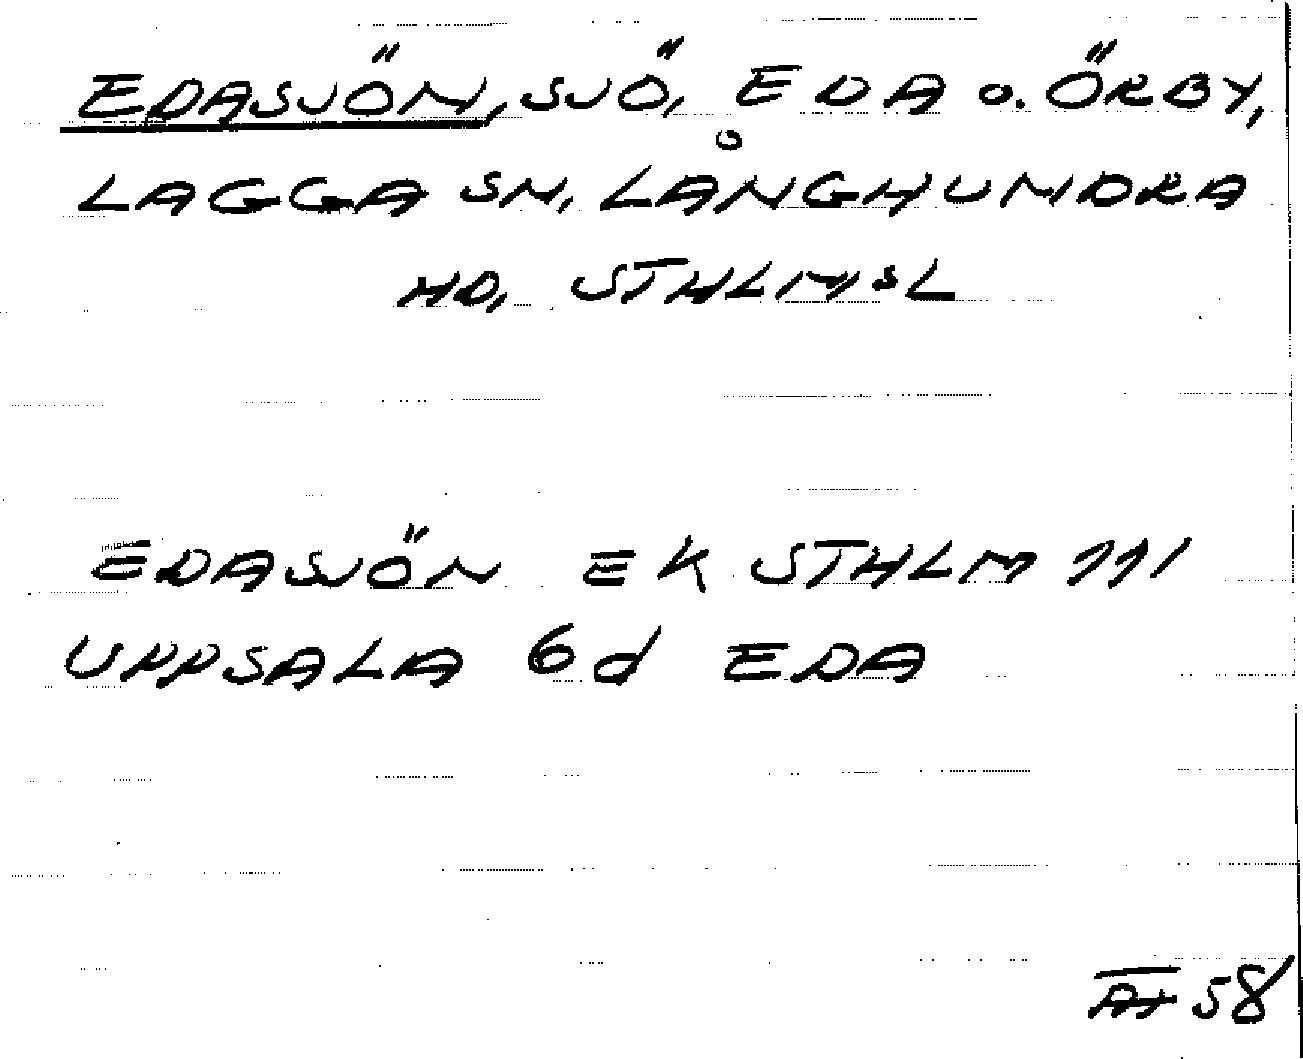 EDASJÖN, SJÖ, EDA o. ÖRBY,
LAGGA SN, LÅNGHUNDRA
HD, STHLMSL
EDASJÖN EK STHLM 111
UPPSALA 6d EDA
58